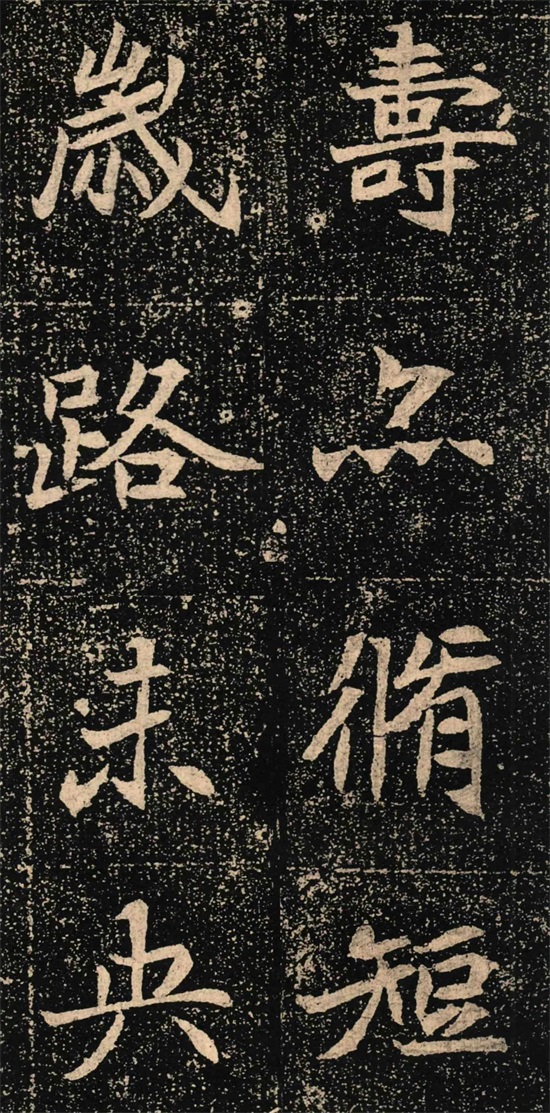 壽脩短
歲路未央